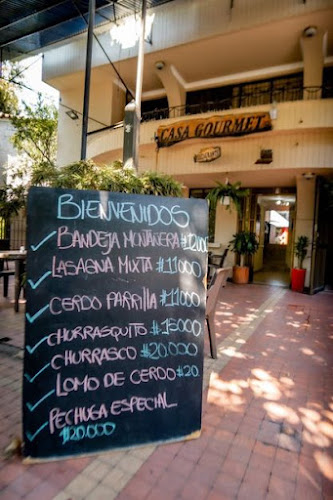 CASA GOURMET
BIENVENIDOS
BANDEJA MONTAÑERA $12.000
LASAGNA MIXTA $11000
CERDO PARRILLA $11000
CHURRASQUITO $15000
CHURRASCO $20.000
LOMO DE CERDO $20.
PECHUGA ESPECIAL
$20.000